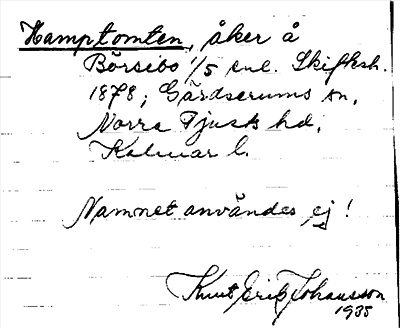 Hamptomten, åker å
Börsebo 1/5 enl. Skifksh.
1878; Gärdserums sn,
Norra Tjusts hd,
Kalmar l.
Namnet användes ej!
Knut Erik Johansson
1935